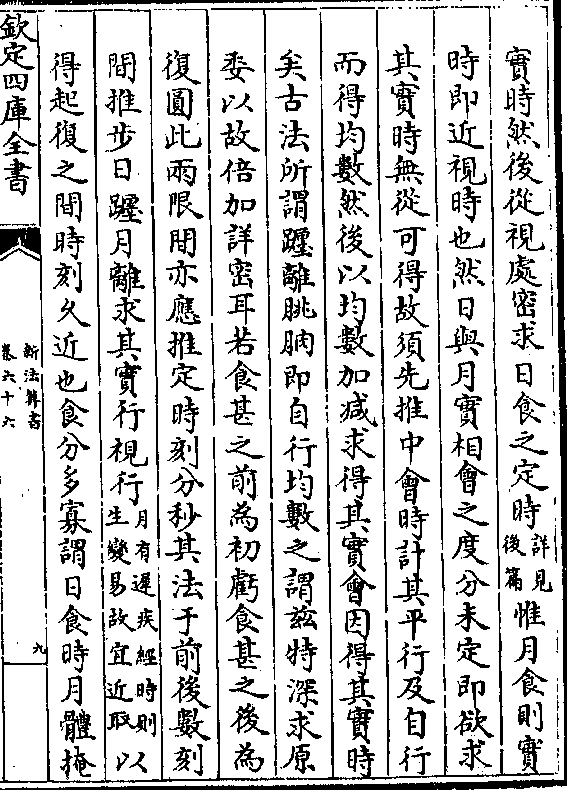 實時然後從視處密求日食之定時詳見後篇惟月食則實
時即近視時也然日與月實相會之度分未定即欲求
其實時無從可得故須先推中會時計其平行及自行
而得均數然後以均數加减求得其實會因得其實時
矣古法所謂躔離朓朒即自行均數之謂兹特深求原
委以故倍加詳密耳若食甚之前為初虧食甚之後為
復圓此兩限間亦應推定時刻分秒其法于前後數刻
間推步日躔月離求其實行視行月有遲疾經時則以生變易故宜近取以
得起復之間時刻久近也食分多寡謂日食時月體掩
欽定四庫全書
新法算書
卷六十六
九